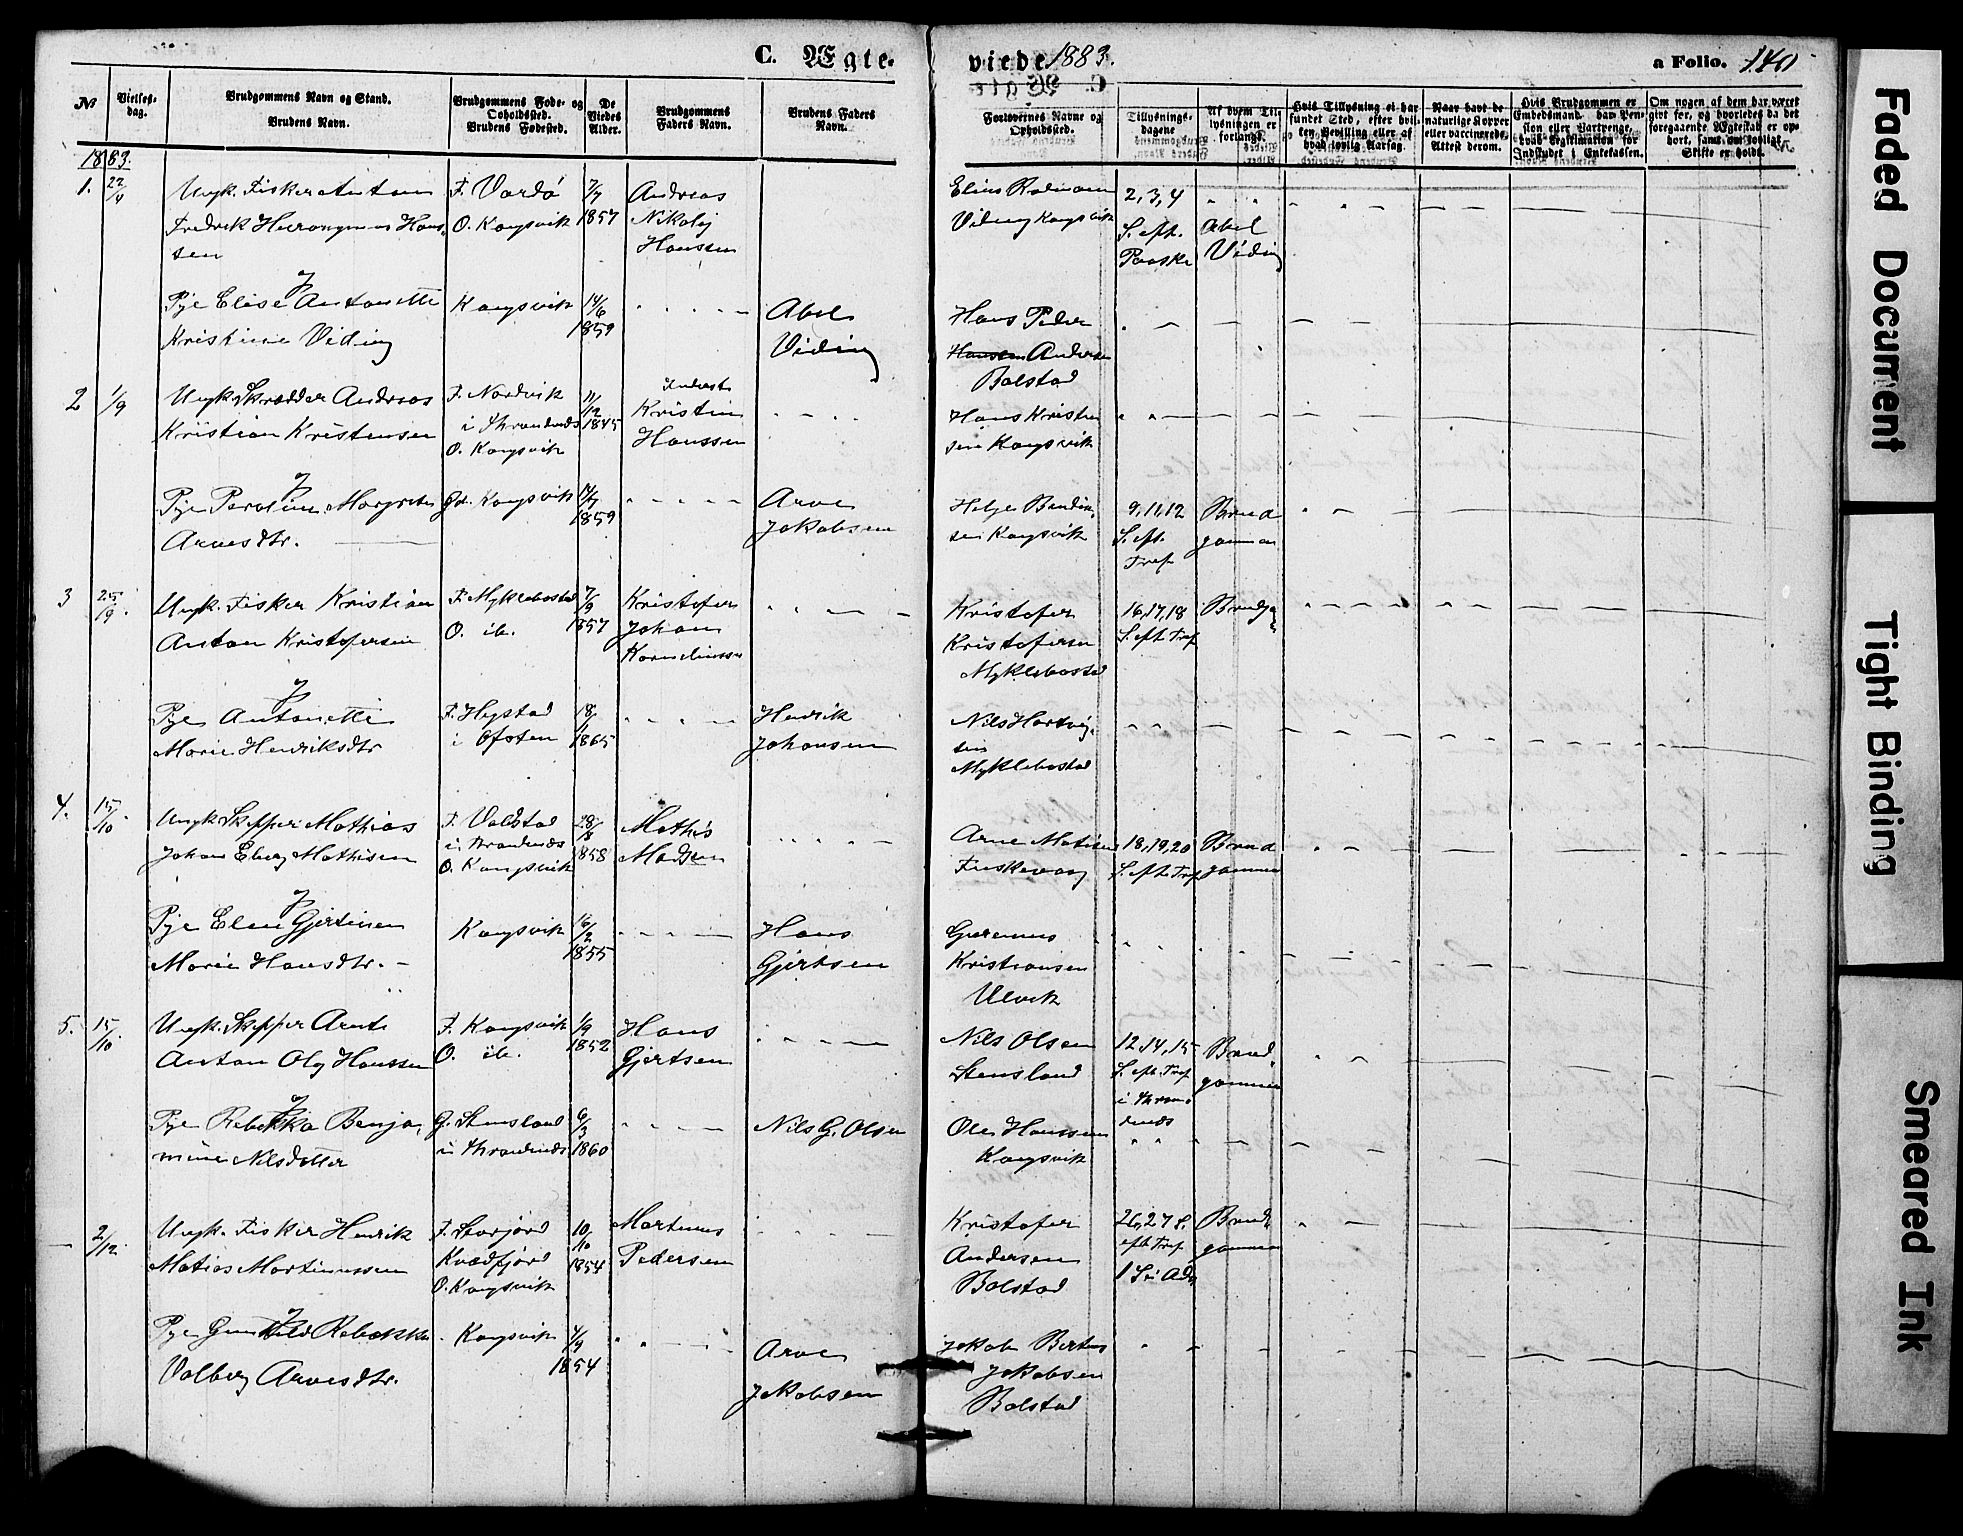 C. Ægte-
viede 1883.
a Folio. 140
№
Vielses-
dag.
Brudgommens Navn og Stand.
Brudens Navn.
Brudgommens Føde- og
Opholdssted.
Brudens Fødested.
De
Viedes
Alder.
Brudgommens
Faders Navn.
Brudens Faders
Navn.
Forlovernes Navne og
Opholdssted.
Tillysnings-
dagene
Af hvem Til-
lysningen er
forlangt.
Hvis Tillysning ei har
fundet Sted, efter hvil-
ken Bevilling eller af
hvad lovlig Aarsag.
Naar havt de
naturlige Kopper
eller vaccinerede,
Attest derom.
Hvis Brudgommen er
Embedsmand, har Pen-
sion eller Vartpenge,
hvad Legitimation for
Indskydet i Enkekassen.
Om nogen af dem har været
gift før, og hvorledes da det
foregaaende Ægteskab er op-
hørt, samt om lovligt
Skifte er holdt.
1883.
1. 22/4
Ungk. Fisker Anton
Fredrik Hieronymus Hans-
sen
F. Vardø
O. Kongsvik
7/7
1857
Andreas
Nikolaj
Hanssen
Viding Kongsvik
2, 3, 4
S. eft.
Paaske
Abel
Viding
&
Pige Elise Antonette
Kristine Viding
Kongsvik
14/6
1859
Abel
Viding
Hans Peder
Hanssen Andersen
Bolstad
2 1/9
Ungk. Skrædder Andreas
Kristian Kristensen
F. Nordvik
i Thrandenæs
O. Kongsvik
11/12
1845
Kristen
Hanssen
Hans Kristen
sen Kongsvik
&
Pige Margrete
Arnesdtr.
Kongsvik
1859
Arne
Jakobsen
sen Kongsvik
9, 11, 12
S. eft.
Tref
Brud
gommen
3 25/9
Ungk. Fisker Kristian
Anton Kristofersen
F. Myklebostad
O. ib.
7/9
1857
Kristofer
Johan
Korneliussen
Kristofer
Kristofersen
Myklebostad
16, 17, 18
S. eft Tref
Brudg
&
Pige Antonette
Marie Henriksdtr
F. Hegstad
i Ofoten
18/1
1865
Henrik
Johansen
Nils Hartvig-
sen
Myklebostad
4. 15/10
Ungk. Skipper Mathias
Johan Eberg Mathisen
i Thrandenæs
O. Kongsvik
28/
1858
Mathis
Madsen
Arne Matisen
18, 19, 20
S. eft. Tref
Brud
gommen
&
Pige Elen Gjertine
Marie Hansdtr. -
Kongsvik
16/2
1855
Hans
Gjertsen
Kristiansen
Ulvik
5. 15/10
Ungk. Skipper Arnt
Anton Olaj Hanssen
F. Kongsvik
O. ib.
1/9
1852
Hans
Gjertsen
Nils Olsen
Stensland
12, 14, 15
S. eft. Tref
i Thran-
denæs
Brud
gommen
&
Pige Rebekka Benja-
mine Nilsdatter
Stensland
i Thrandenæs
6/3
1860
Nils G. Olsen
Ole Hanssen
Kongsvik
2/12
Ungk. Fisker Henrik
Matias Martinussen
F. Storjord
Kvædfjord
O. Kongsvik
10/10
1854
Martinus
Pedersen
Kristofer
Andersen
Bolstad
26, 27 S.
eft Tref
1 S i Adv
Brud
gommen
&
Pige Gunhild Rebekka
Valborg Arnesdtr.
Kongsvik
1854
Arne
Jakobsen
Jakob
Jakobsen
Bolstad
Faded Document
Tight Binding
Smeared Ink